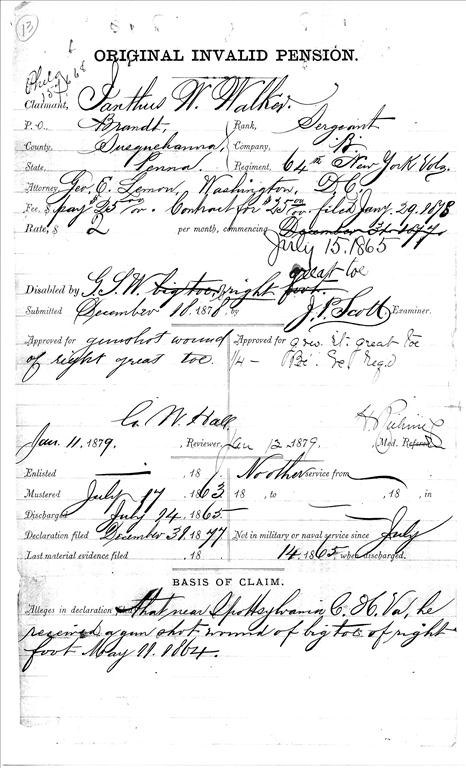 13
ORIGINAL INVALID PENSION.
Claimant, Ianthus W. Walker.
P. O., Brandt,
Rank, Sergeant
County, Susquehanna,
Company, B
State, Penna
Regiment, 64th New York Vols.
Attorney, Geo. E. Lemon, Washington, D.C.
Fee, $ pay $25 00/00. Contract for $25 00/00. filed Jany. 29. 1878
Rate, $ 2 per month, commencing December 31. 1877.
July 15. 1865
great toe
Disabled by G.S.W. big toe right foot.
Submitted December 18. 1878, by J. P. Scott, Examiner.
Approved for gunshot wound
of right great toe.
Approved for gsw. rt. great toe
1/4 -
C. W. Hall
Jan. 11. 1879. , Reviewer.
Jan 12 1879. Med. Referee.
Enlisted — , 18 .
No other service from
Mustered July 17 , 1863
18 , to , 18 , in
Discharged July 14 , 1865
Declaration filed December 31. 1877
Not in military or naval service since July
Last material evidence filed , 18
14. 1865 when discharged.
BASIS OF CLAIM.
Alleges in declaration that near Spottsylvania C. H. Va, he
received a gun shot wound of big toe of right
foot May 11. 1864.